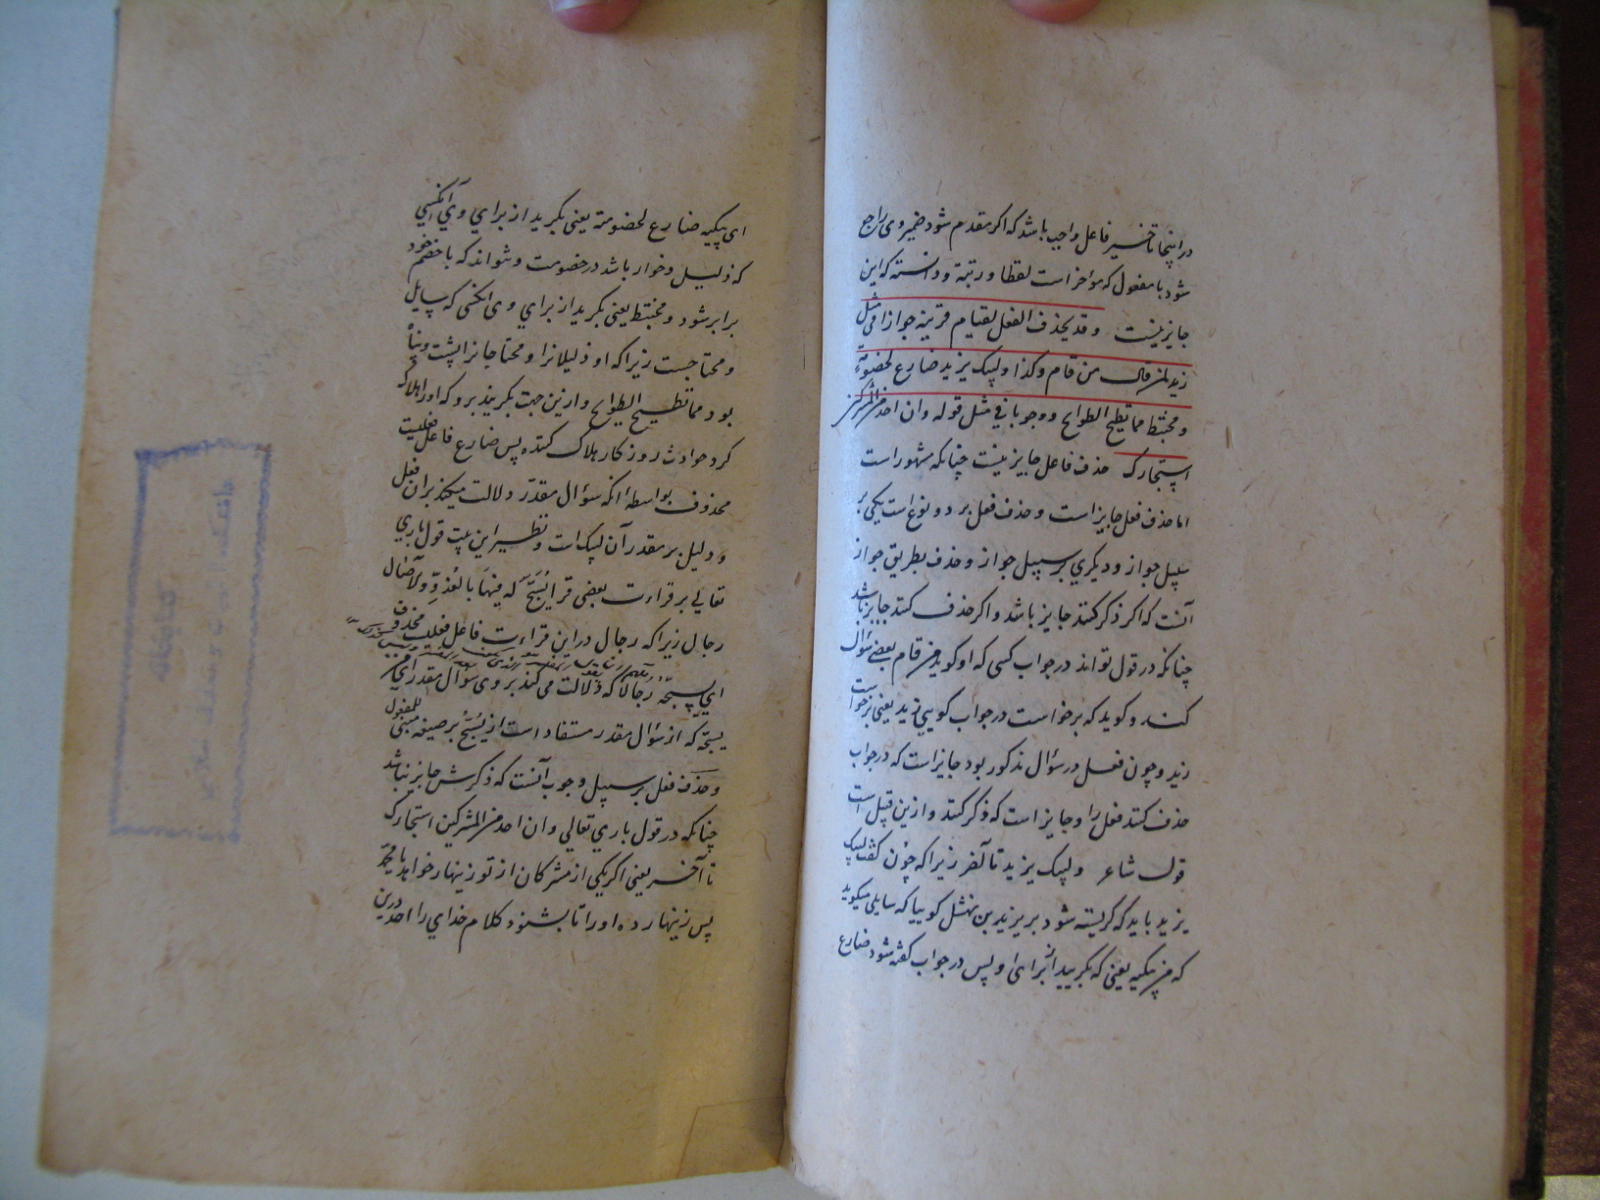 در اینجا تاخیر فاعل واجب باشد که اکر مقدم شود ضمیر وی راجع
شود با مفعول که مؤخر است لفظا و رتبة و دانسته که این
جایز نیست وقد یحذف الفعل لقیام قرینة جوازا فی مثل
زید لمن قال من قام وکذا ولیبک یزید ضارع لخصومة
ومختبط مما تطیح الطوائح ووجوبا فی مثل قوله وان احد من المشرکین
استجارک حذف فاعل جایز نیست چنانکه مشهور است
اما حذف فعل جایز است و حذف فعل بر دو نوع است یکی بر
سبیل جواز و دیکری بر سبیل جواز و حذف بطریق جواز
آنست که اکر ذکر کنند جایز باشد و اکر حذف کنند جایز باشد
چنانکه در قول تو اند در جواب کسی که او کوید من قام یعنی سؤال
کند و کوید که برخاست در جواب کویی زید یعنی برخواست
زید و چون فعل در سؤال مذکور بود جایز است که در جواب
حذف کنند فعل را و جایز است که ذکر کنند و از این قبیل است
قول شاعر ولیبک یزید تا آخر زیرا که چون کفت لیبک
یزید باید که کریسته شود بر یزید بن نهشل کوییا که سایلی میکوید
که من یبکیه یعنی که بکرید از برای او پس در جواب کفته شود ضارع
ای یبکیه ضارع لخصومة یعنی بکرید از برای وی آنکسی
که ذلیل و خوار باشد در خصومت و نتواند که با خصم خود
برابر شود و مختبط یعنی بکرید از برای وی آنکسی که سایل
و محتاجست زیرا که او ذلیلانرا و محتاجانرا پشت و پناه
بود مما تطیح الطوایح و از این جهت بکریند برو که او را هلاک
کرد حوادث روزکار هلاک کننده پس ضارع فاعل فعلیست
محذوف بواسطهٔ انکه سؤال مقدر دلالت میکند بر ان فعل
و دلیل بر مقدر آن لیبک است و نظیر این بیت قول باری
تعالی بر قراءت بعضی قرا یُسَبَّحُ لَهُ فِیهَا بِالْغُدُوِّ وَالْآصَالِ
رجال زیرا که رجال در این قراءت فاعل فعلیست محذوف
ای یسبحه رجال که دلالت می کند بر وی سؤال مقدر ای من
یسبحه که از سؤال مقدر مستفاد است از یُسَبَّحُ بر صیغه مبنی للمفعول
و حذف فعل بر سبیل وجوب آنست که ذکرش جایز نباشد
چنانکه در قول باری تعالی وان احد من المشرکین استجارک
تا آخر یعنی اکر یکی از مشرکان از تو زینهار خواهد یا محمد
پس زینهار ده او را تا بشنود کلام خدای را احد درین
کتابخانه